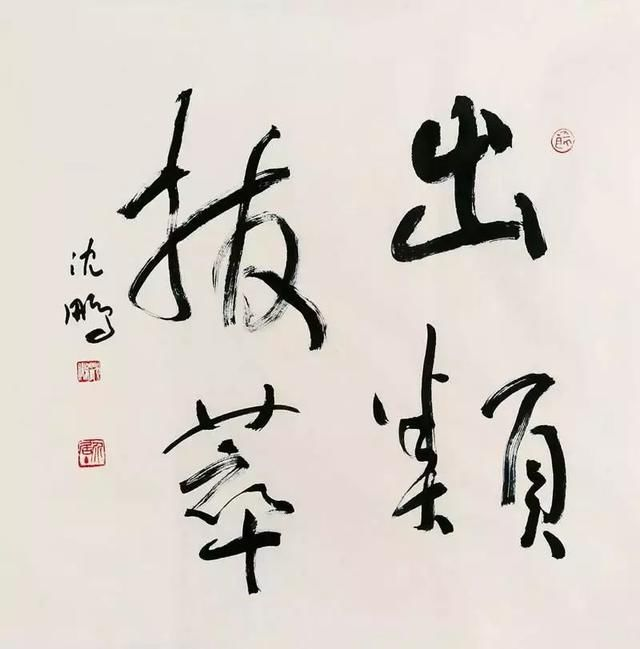 出類
拔萃
沈鵬